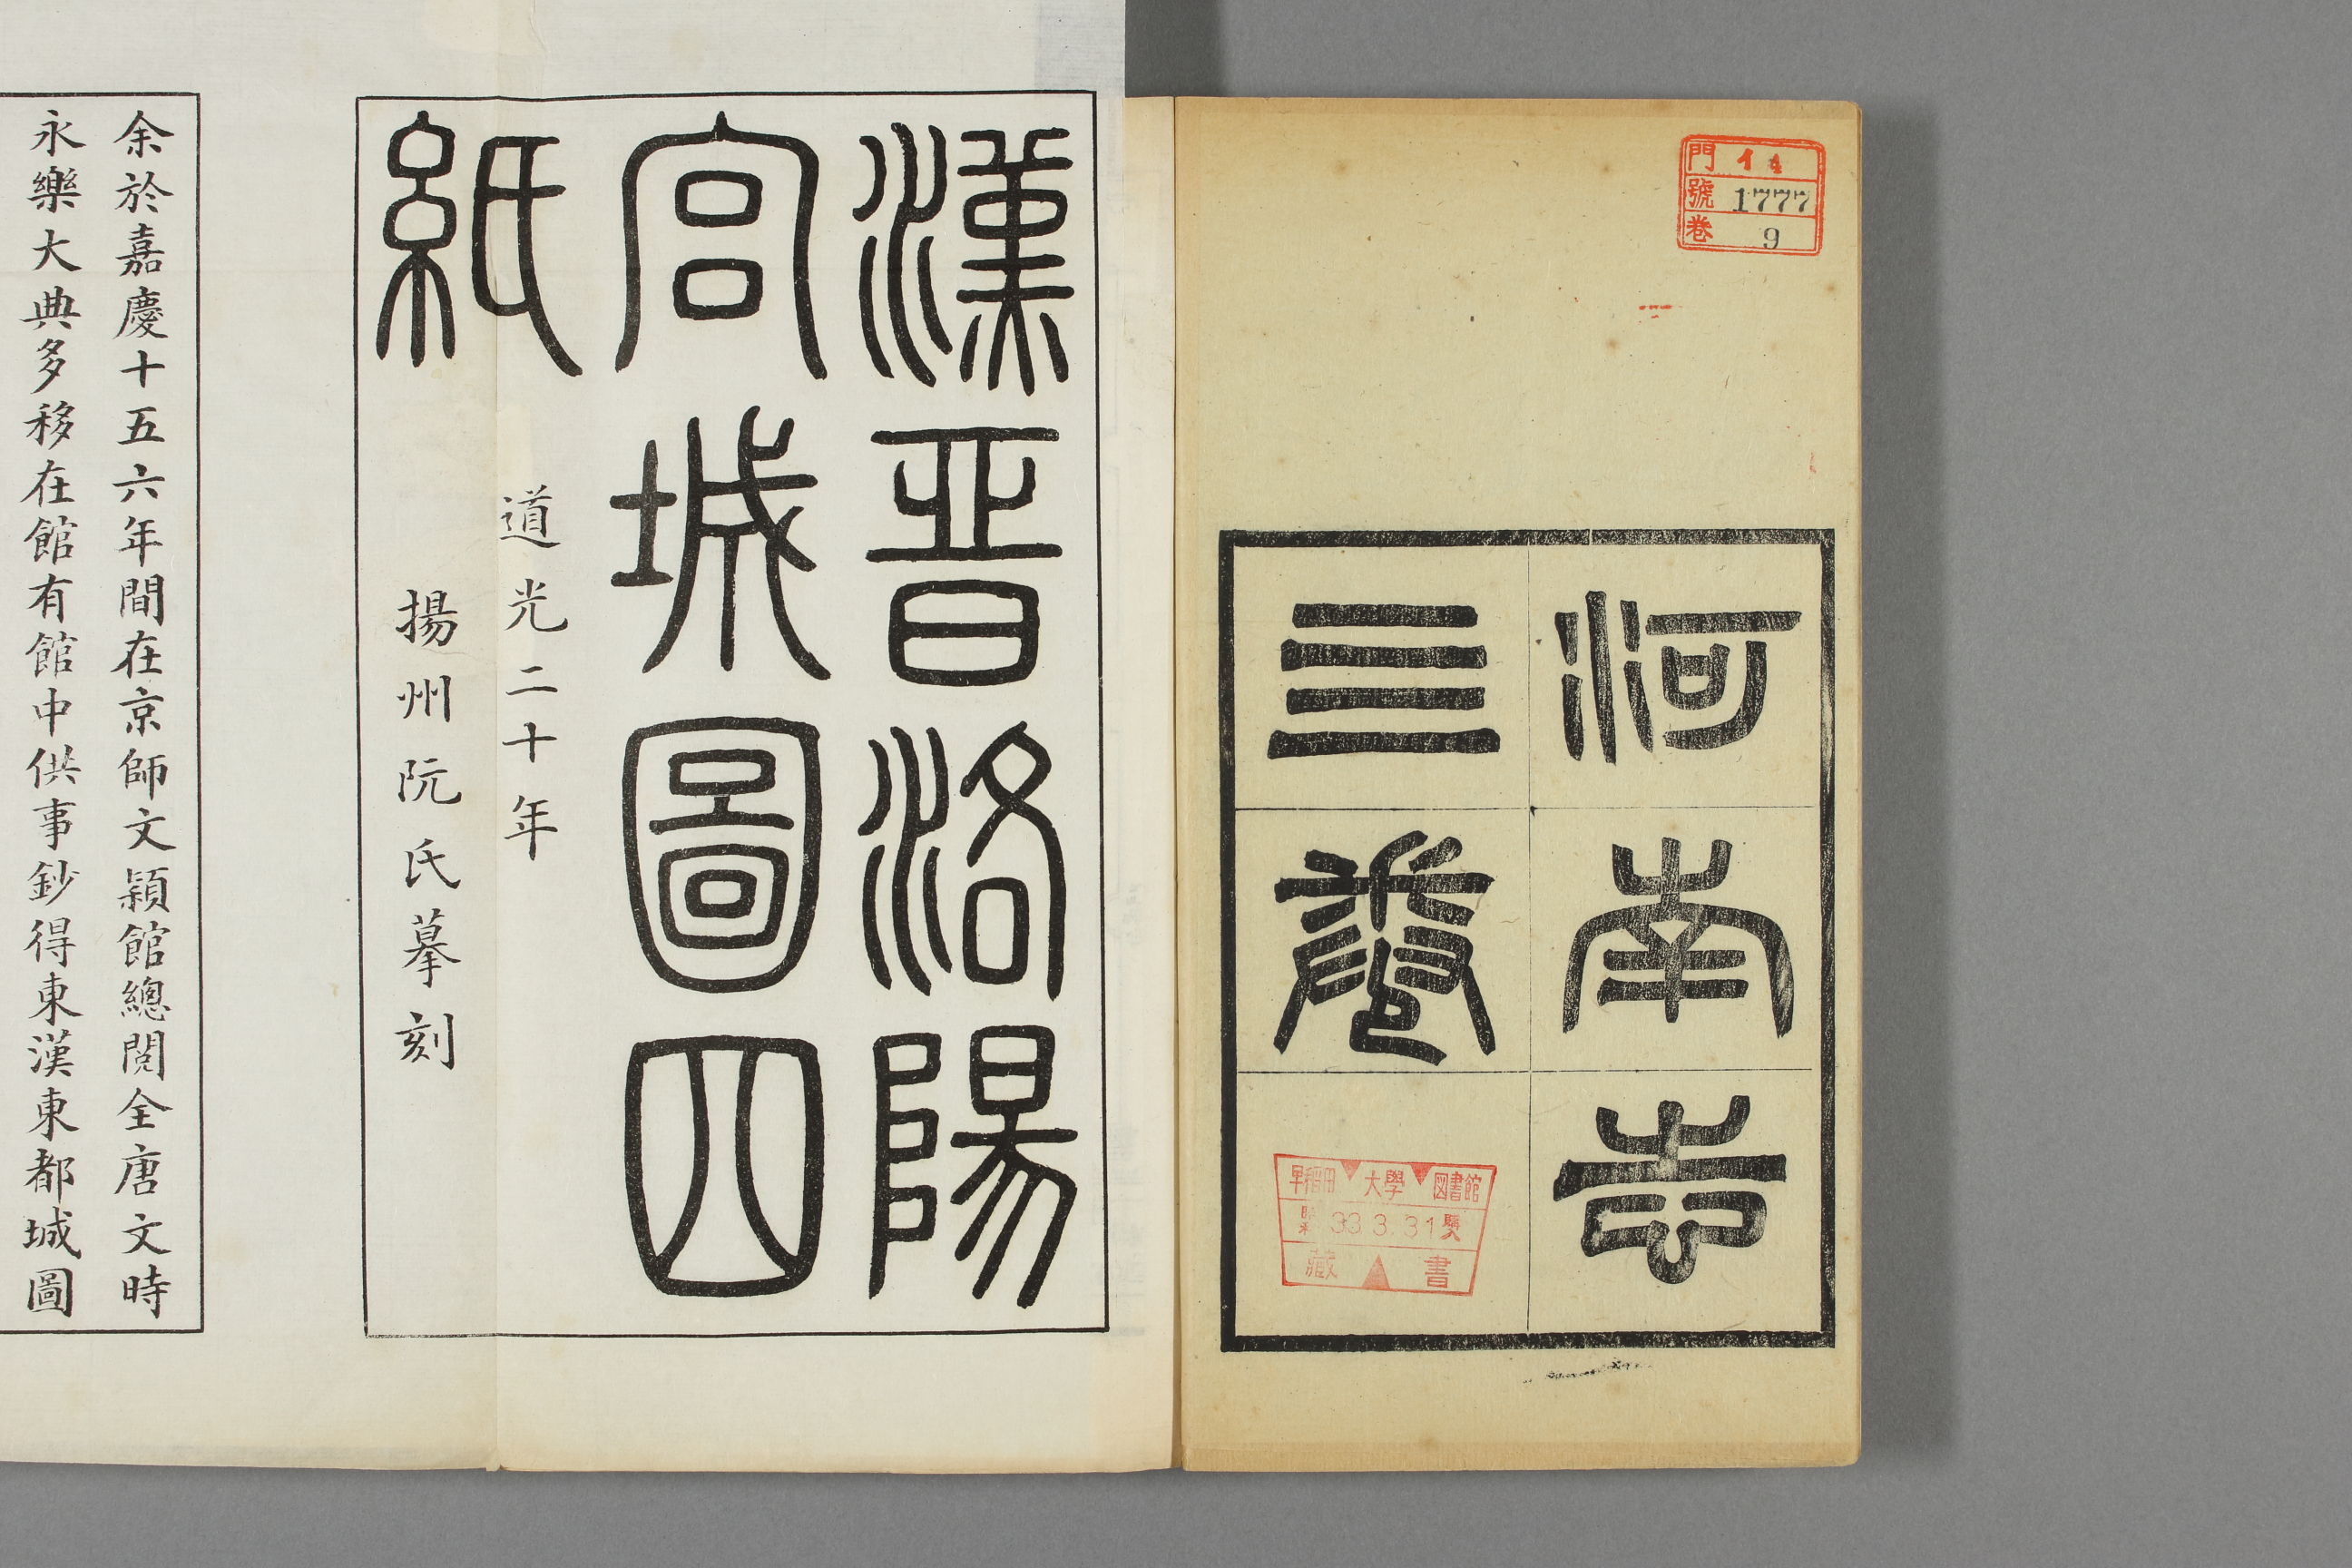 門
號 1777
卷 9
河南志
亖卷
早稲田大學図書館
33 3.31
藏書
漢晉洛陽
宮城圖四
紙
道光二十年
揚州阮氏摹刻
余於嘉慶十五六年間在京師文穎館總閱全唐文時
永樂大典多移在館有館中供事鈔得東漢東都城圖